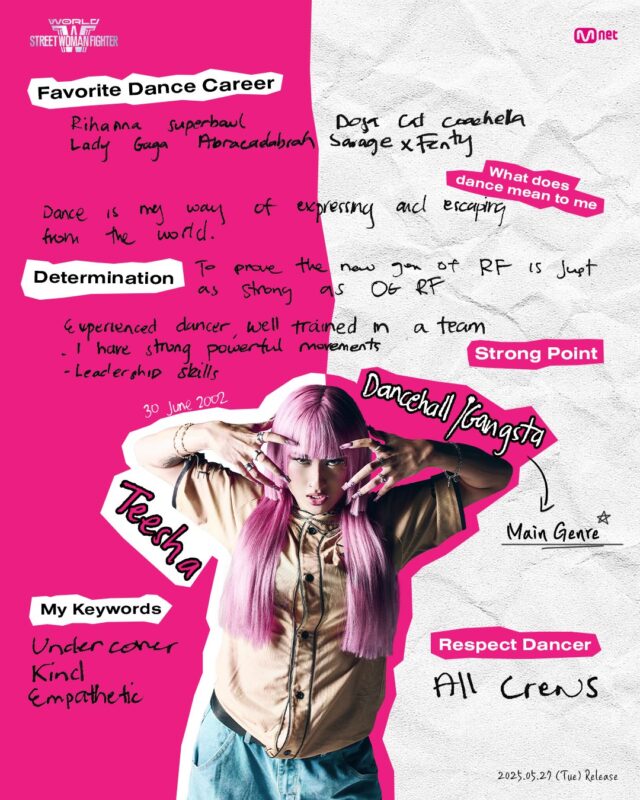 WORLD
STREET WOMAN FIGHTER
Mnet
Favorite Dance Career
Rihanna superbowl Doja Cat coachella
Lady Gaga Abracadabrah Savage x Fenty
What does
dance mean to me
Dance is my way of expressing and escaping
from the world.
Determination
To prove the new gen of RF is just
as strong as OG RF
Experienced dancer, well trained in a team
- I have strong powerful movements
- Leadership skills
Strong Point
30 June 2002
Dancehall/Gangsta
Main Genre
Teesha
My Keywords
Undercover
Kind
Empathetic
Respect Dancer
All crews
2025.05.27 (Tue) Release